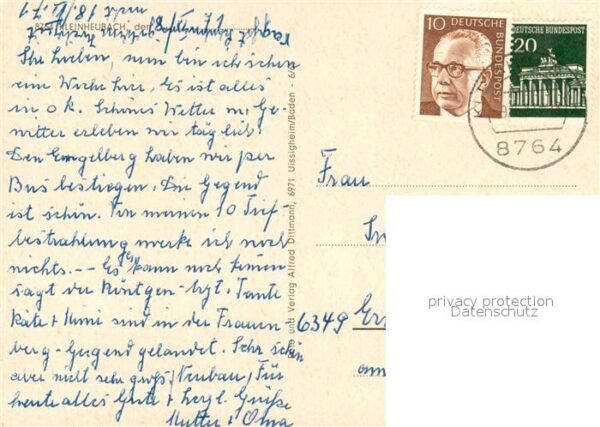 8764 KLEINHEUBACH,
Ihr Lieben, nun bin ich schon
eine Woche hier. Es ist alles
in o.k. Schönes Wetter m. Ge-
witter erleben wir täglich.
Den Engelberg haben wir per
Bus bestiegen. Die Gegend
ist schön. Von meinen 10 Tief-
bestrahlung merke ich noch
nichts. -- Es kann noch kommen
sagt der Röntgen-Arzt. Tante
Käte + Mimi sind in der Frauen-
berg-Gegend gelandet. Sehr schön
aber nicht sehr groß, (Neubau) Für
heute alles Gute + herzl. Grüße
Mutter + Oma
und Verlag Alfred Dittmann, 6971 Uissigheim/Baden
10 DEUTSCHE BUNDESPOST
20 DEUTSCHE BUNDESPOST
8764
Frau
6349
privacy protection
Datenschutz